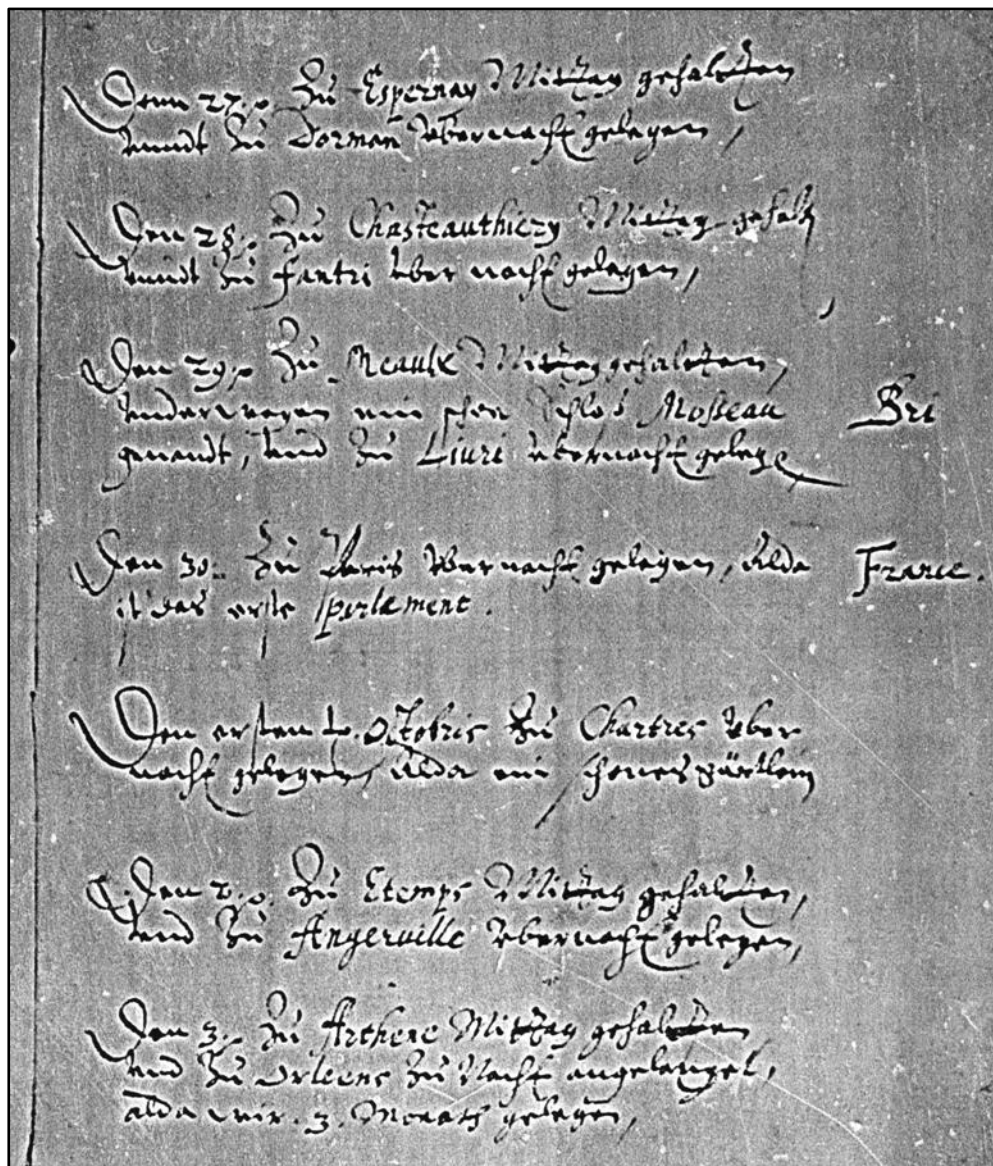 Denn 27. Zu Espernay Mittag gehaltten
unndt zu Dorman ubernacht gelegen,
Den 28. Zu Chasteauthiery Mittag gehalt
unndt zu Fantri uber nacht gelegen,
Den 29. Zu Meaulx Mittag gehaltten,
underwegen ein schen Schlos Moseau Bri
genandt, und zu Liuri ubernacht geleg
Den 30. Zu Paris ubernacht gelegen, Alda France.
ist das erste parlement.
Den ersten Octobris zu Chartres uber
nacht gelegen, Alda ein schenes gärtlein
Den 2. Zu Etemps Mittag gehaltten,
und zu Angerville ubernacht gelegen,
Den 3. Zu Arthene Mittag gehaltten
und zu Orleens zu Nacht angelanget,
alda wir 3. Monath gelegen,